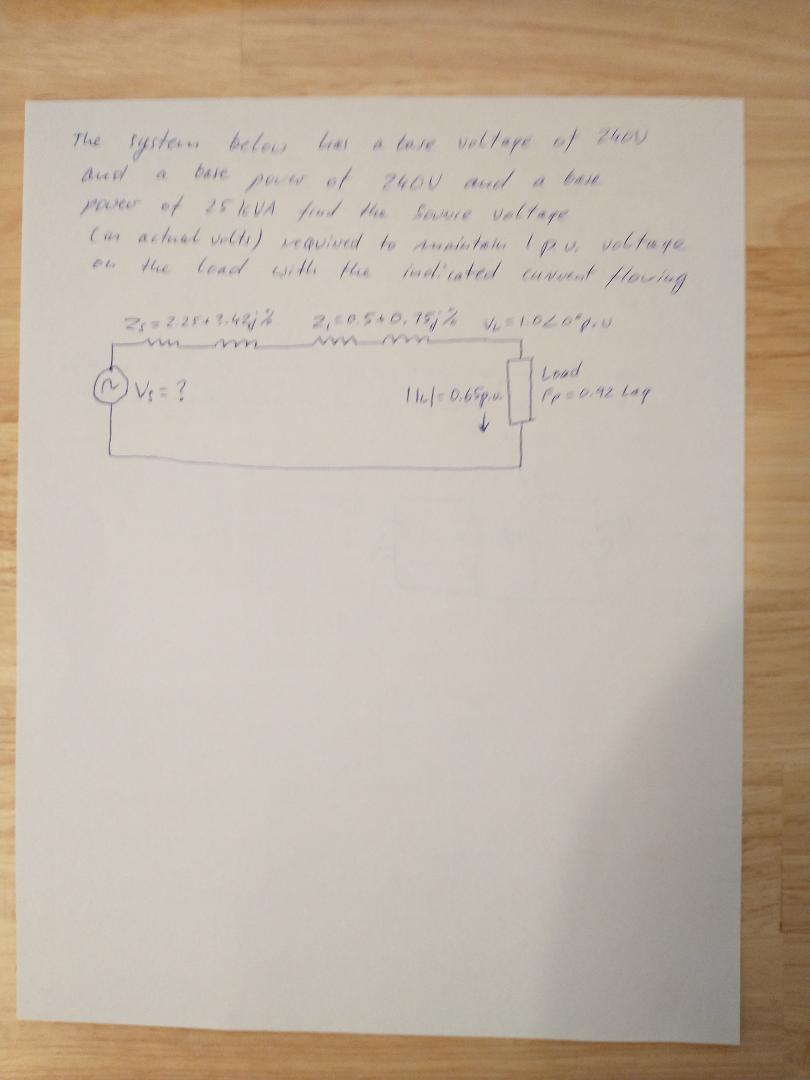 The system below has a base voltage of 240V
and a base power of 240V and a base
power of 25 kVA find the source voltage
(in actual volts) required to maintain 1 p.u. voltage
on the load with the indicated current flowing
Zs = 2.25+3.42j% Z1=0.5+0.75j% VL=1.0∠0°p.u
Vs = ? |IL|=0.65p.u. Load
Fp=0.92 Lag